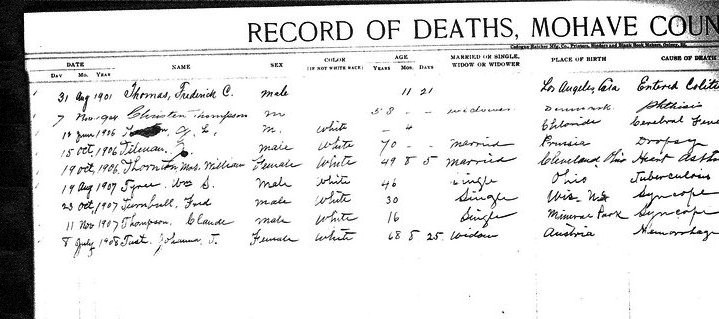 RECORD OF DEATHS, MOHAVE COUN
DATE NAME SEX COLOR AGE MARRIED OR SINGLE, PLACE OF BIRTH CAUSE OF DEATH
DAY MO. YEAR (IF NOT WHITE RACE) YEARS MOS. DAYS WIDOW OR WIDOWER
31 Aug 1901 Thomas, Frederick C. male 11 21 Los Angeles, Entered Colit
7 Nov 1904 Christen Thompson m 58 - - widower Denmark Phthisis
June 1906 L. M. White - 4 Chloride Cerebral Feve
15 Oct, 1906 male White 70 - - married Prussia Dropsy
19 Oct, 1906 Thornton Mrs. William Female White 49 8 5 married Cleveland, Ohio Heart Asth
19 Aug 1907 S. male White 46 Single Ohio Tuberculosis
23 Oct, 1907 Turnbull, Fred male White 30 Single Syncope
11 Nov 1907 Thompson, Claude male White 16 Single Mineral Park Syncope
8 July 1908 Tust, Johanna J. Female White 68 8 25 Widow Austria Hemorrhage